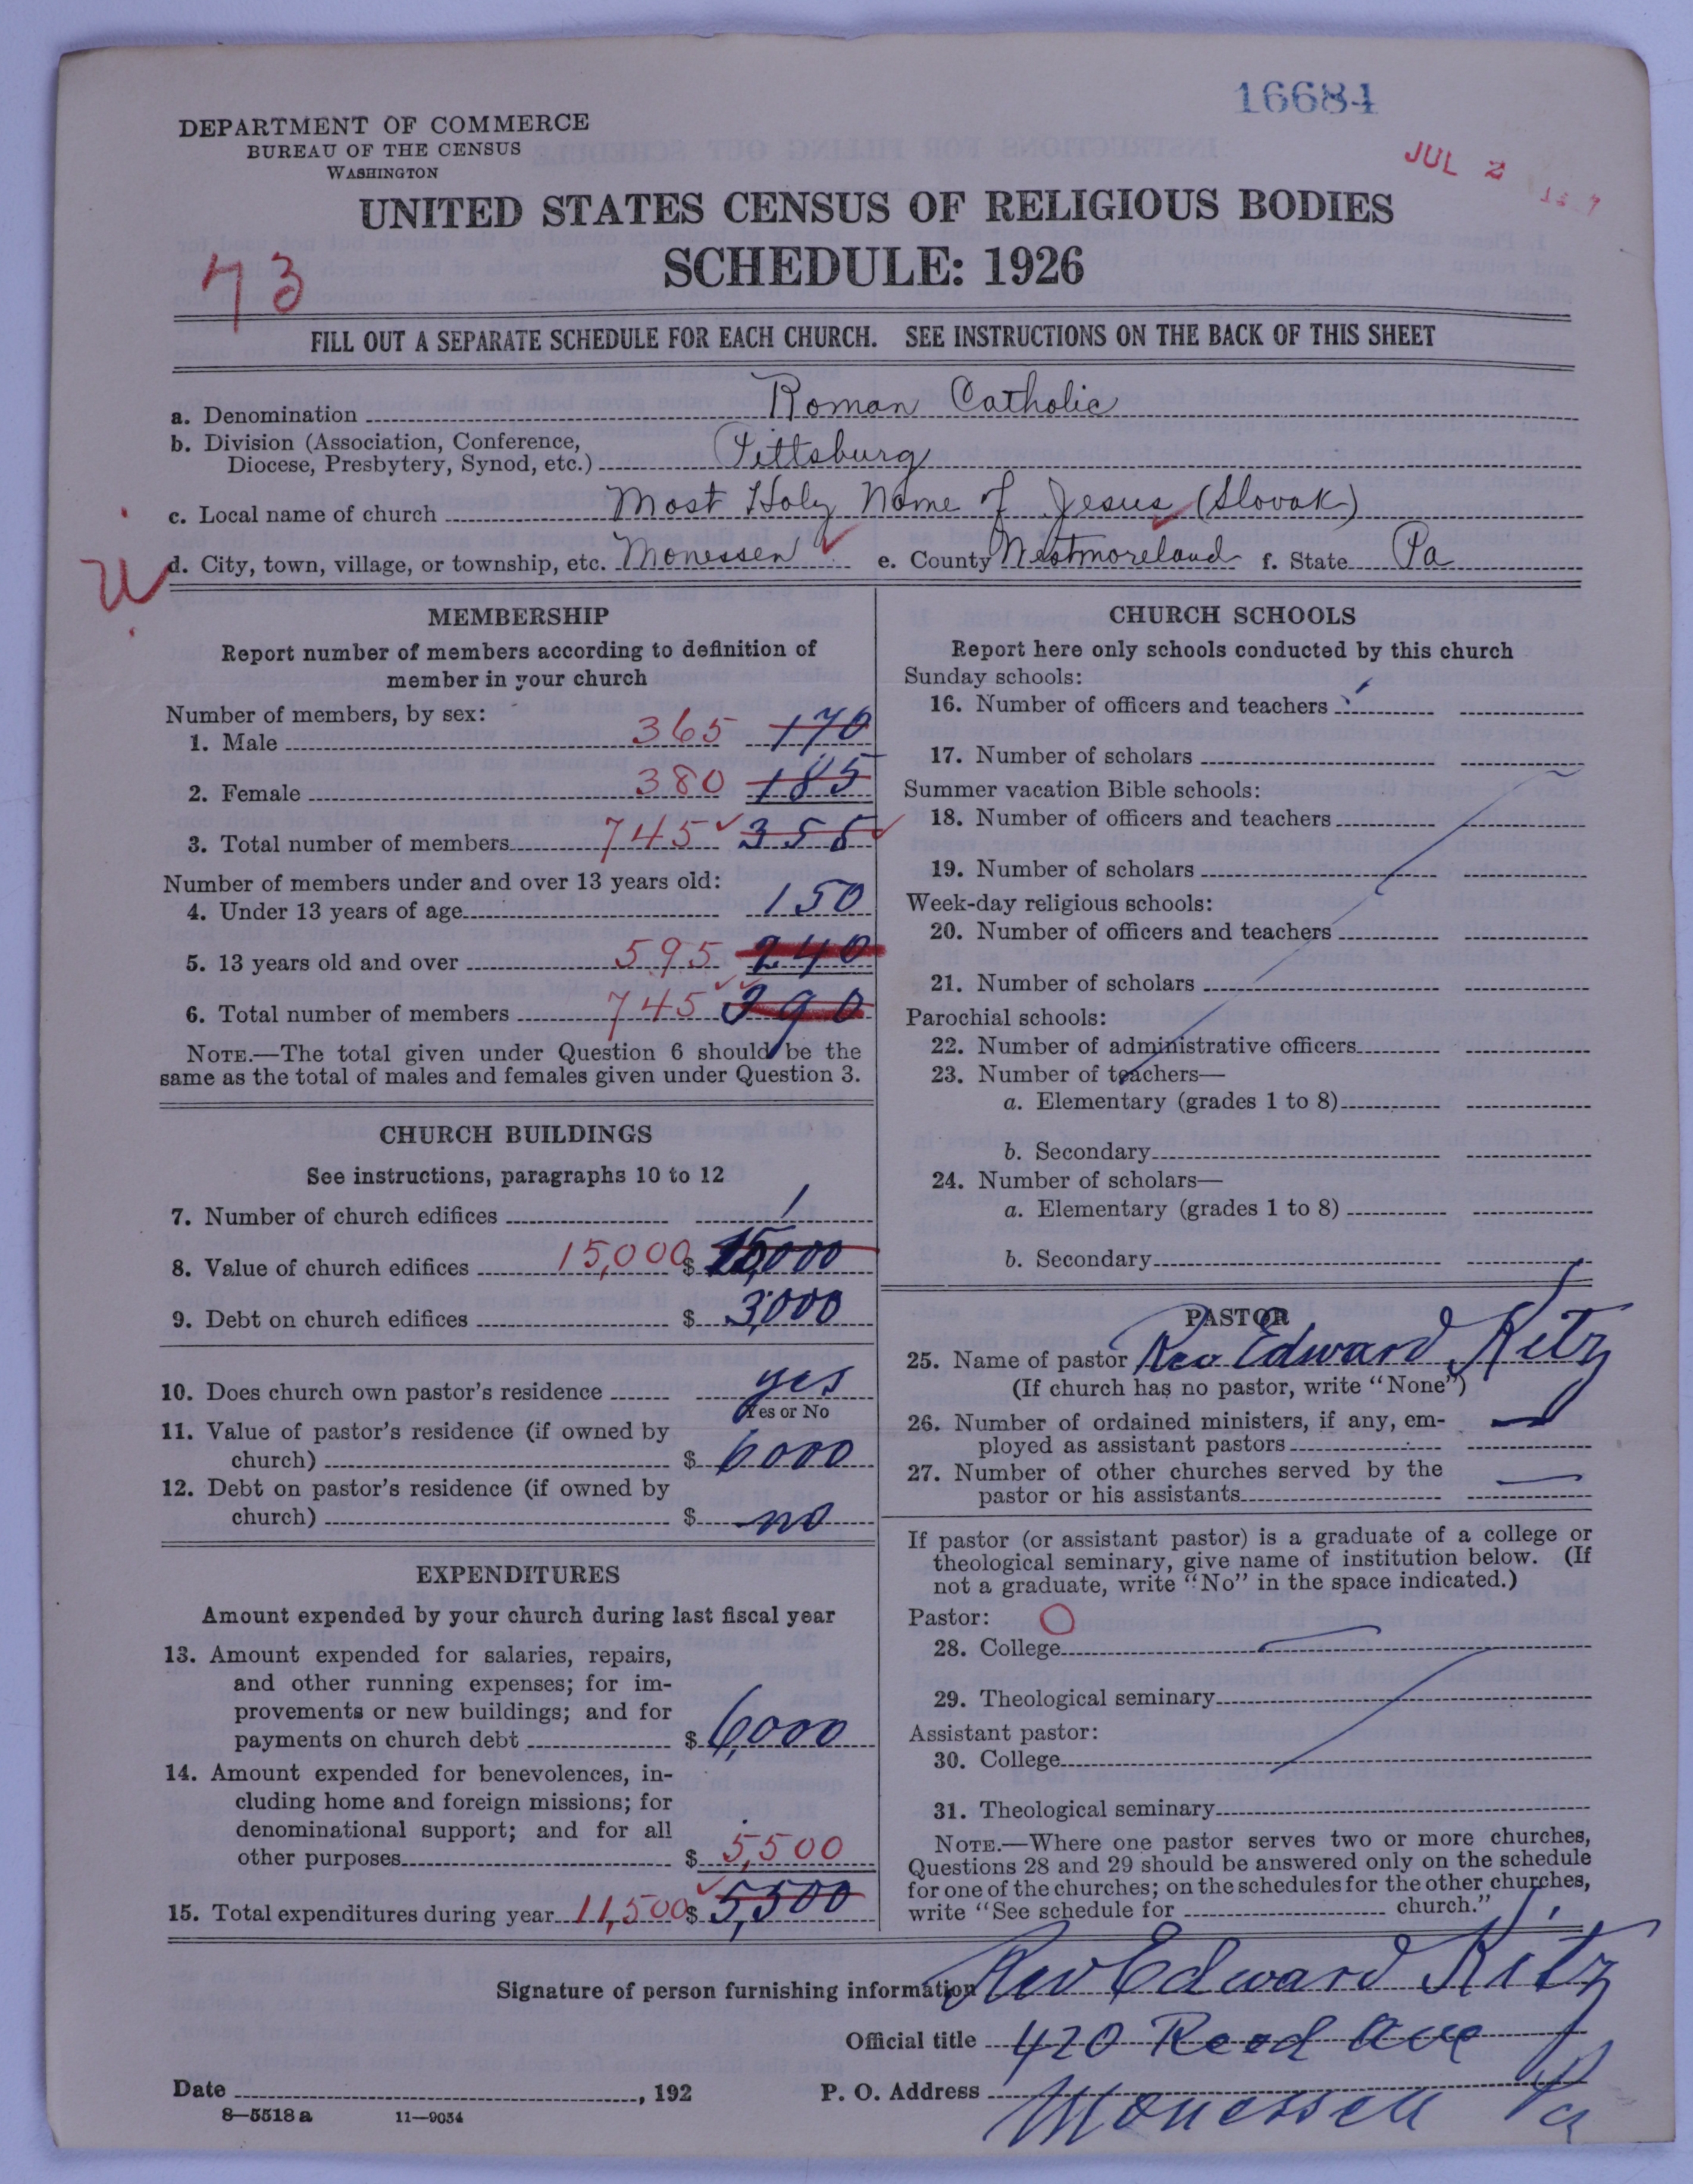 16684
DEPARTMENT OF COMMERCE
BUREAU OF THE CENSUS
WASHINGTON
JUL 2
UNITED STATES CENSUS OF RELIGIOUS BODIES
SCHEDULE: 1926
73
FILL OUT A SEPARATE SCHEDULE FOR EACH CHURCH. SEE INSTRUCTIONS ON THE BACK OF THIS SHEET
a. Denomination Roman Catholic
b. Division (Association, Conference,
Diocese, Presbytery, Synod, etc.) Pittsburg
c. Local name of church Most Holy Name of Jesus (Slovak)
d. City, town, village, or township, etc. Monessen e. County Westmoreland f. State Pa
MEMBERSHIP
Report number of members according to definition of
member in your church
Number of members, by sex:
1. Male 365 170
2. Female 380 185
3. Total number of members 745 355
Number of members under and over 13 years old:
4. Under 13 years of age 150
5. 13 years old and over 595 240
6. Total number of members 745 390
NOTE.—The total given under Question 6 should be the
same as the total of males and females given under Question 3.
CHURCH BUILDINGS
See instructions, paragraphs 10 to 12
7. Number of church edifices 1
8. Value of church edifices 15,000 $ 15,000
9. Debt on church edifices $ 3,000
10. Does church own pastor's residence yes
Yes or No
11. Value of pastor's residence (if owned by
church) $ 6000
12. Debt on pastor's residence (if owned by
church) $ no
EXPENDITURES
Amount expended by your church during last fiscal year
13. Amount expended for salaries, repairs,
and other running expenses; for im-
provements or new buildings; and for
payments on church debt $ 6,000
14. Amount expended for benevolences, in-
cluding home and foreign missions; for
denominational support; and for all
other purposes $ 5,500
15. Total expenditures during year 11,500 $ 5,500
CHURCH SCHOOLS
Report here only schools conducted by this church
Sunday schools:
16. Number of officers and teachers
17. Number of scholars
Summer vacation Bible schools:
18. Number of officers and teachers
19. Number of scholars
Week-day religious schools:
20. Number of officers and teachers
21. Number of scholars
Parochial schools:
22. Number of administrative officers
23. Number of teachers—
a. Elementary (grades 1 to 8)
b. Secondary
24. Number of scholars—
a. Elementary (grades 1 to 8)
b. Secondary
PASTOR
25. Name of pastor Rev Edward Kitz
(If church has no pastor, write "None")
26. Number of ordained ministers, if any, em-
ployed as assistant pastors
27. Number of other churches served by the
pastor or his assistants
If pastor (or assistant pastor) is a graduate of a college or
theological seminary, give name of institution below. (If
not a graduate, write "No" in the space indicated.)
Pastor:
28. College
29. Theological seminary
Assistant pastor:
30. College
31. Theological seminary
NOTE.—Where one pastor serves two or more churches,
Questions 28 and 29 should be answered only on the schedule
for one of the churches; on the schedules for the other churches,
write "See schedule for church."
Signature of person furnishing information Rev Edward Kitz
Official title 420 Reed Ave
Date , 192 P. O. Address Monessen Pa
8—5518 a 11—9034